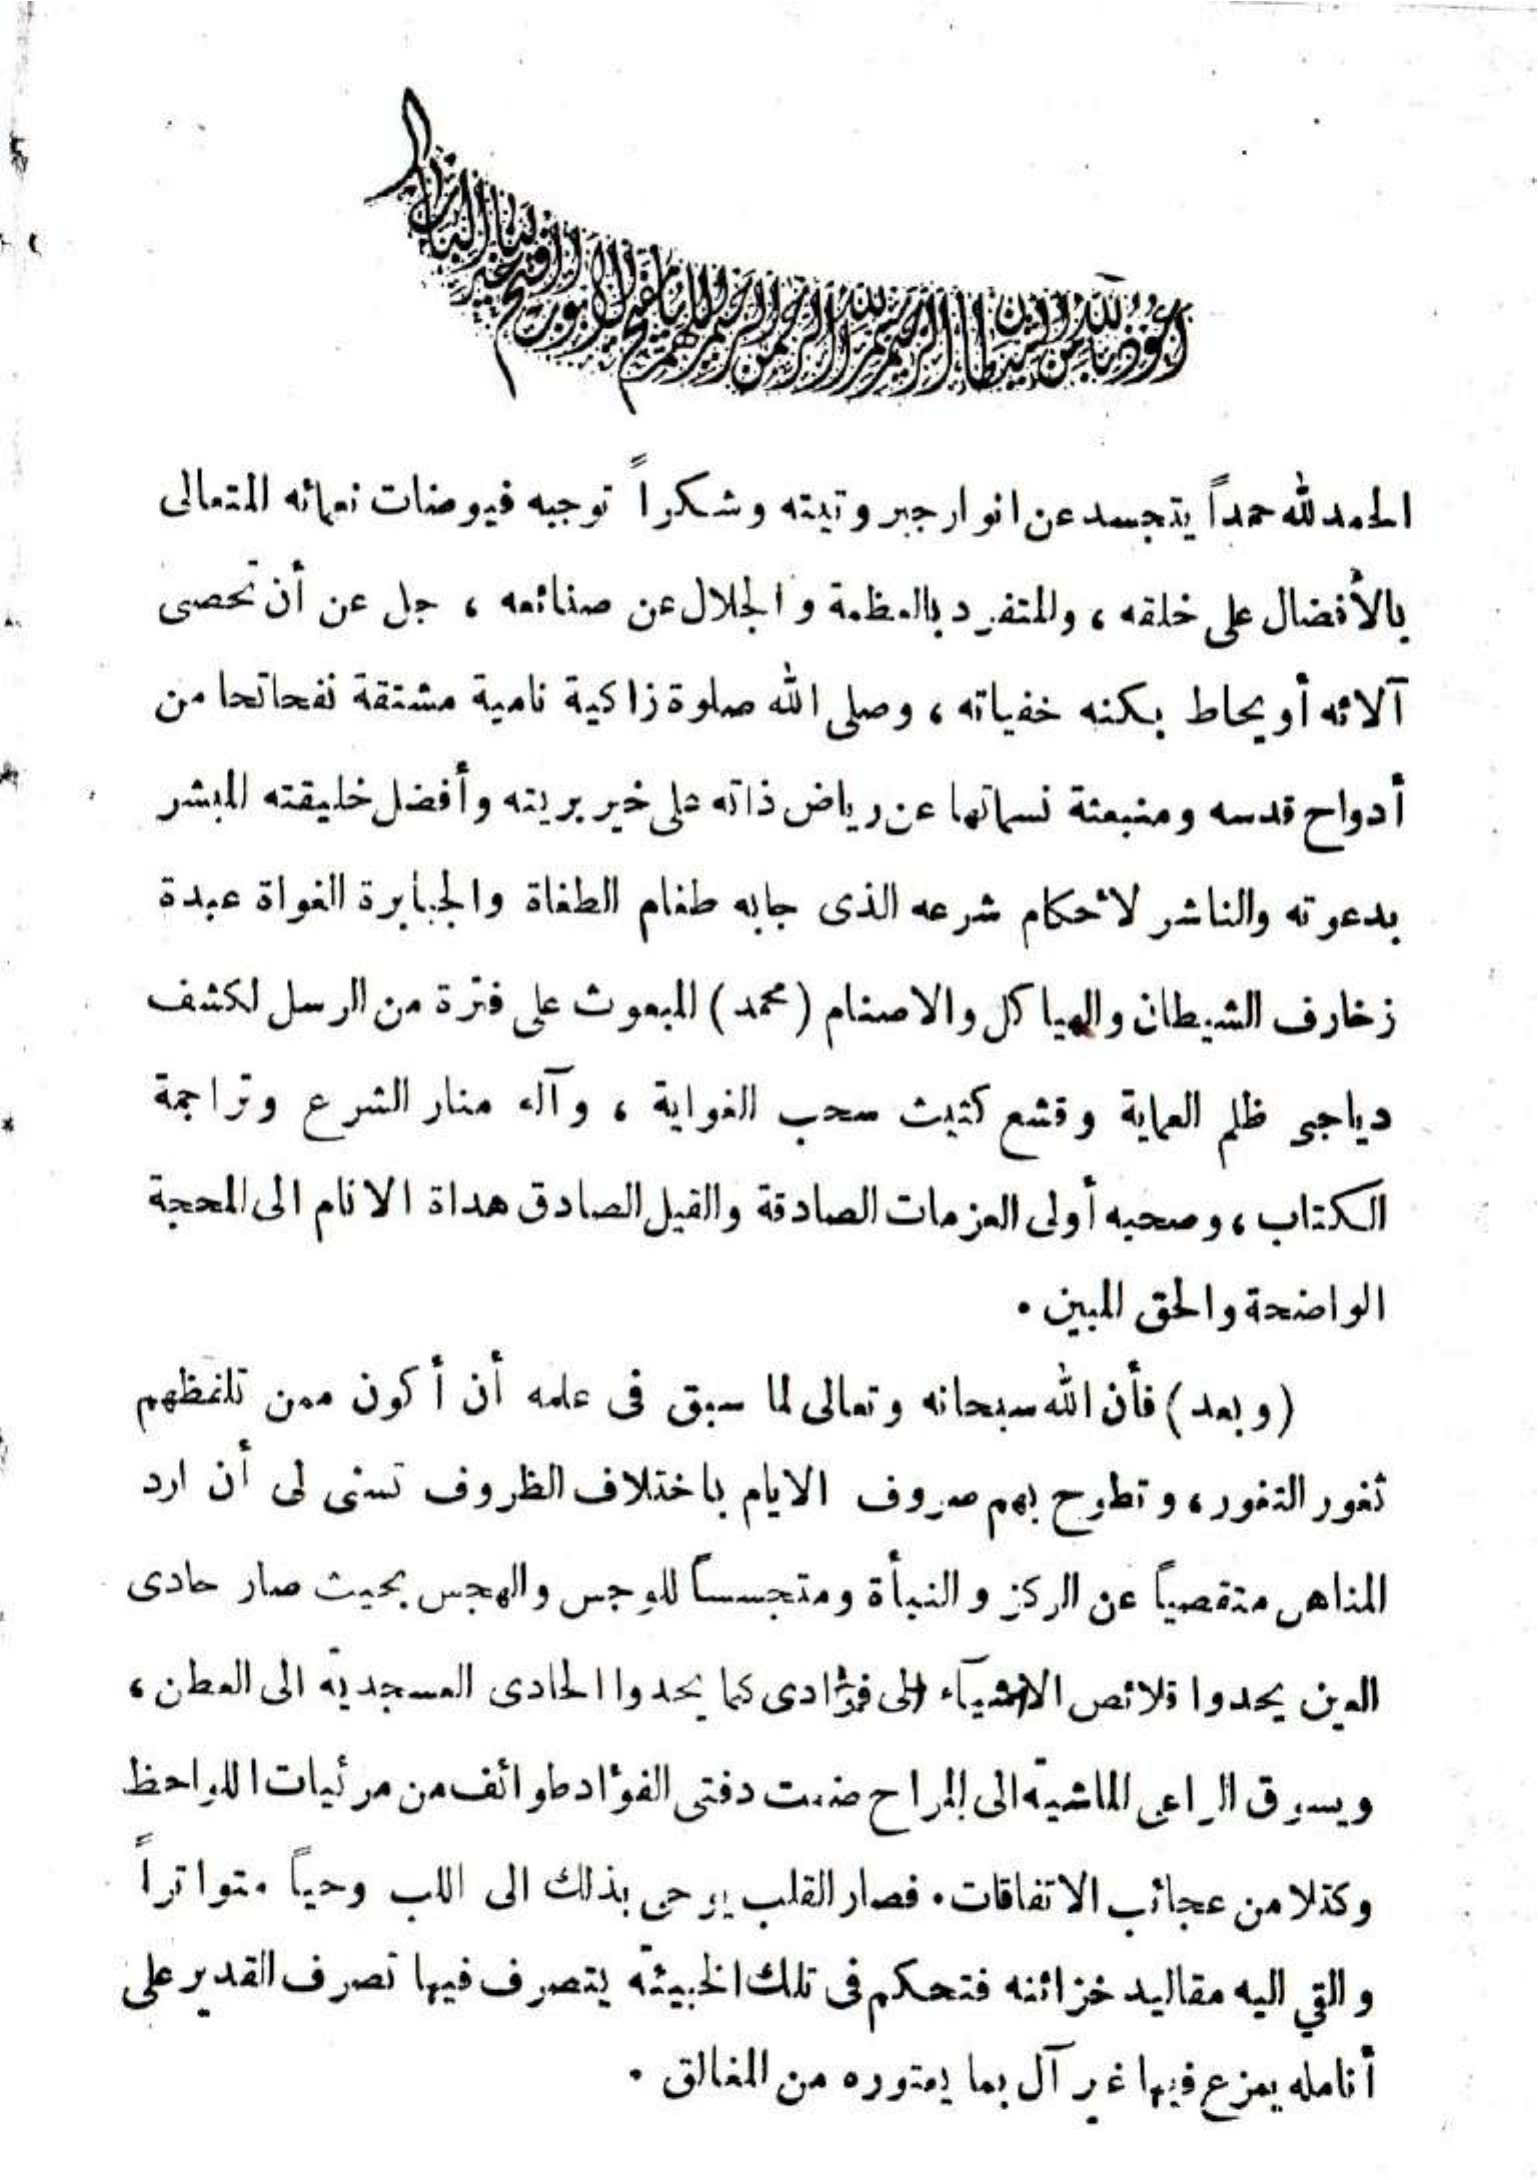 أعوذ بالله من الشيطان الرجيم بسم الله الرحمن الرحيم اللهم يا مفتح الأبواب افتح لنا خير الباب
الحمد لله حمداً يتجسد عن انوار جبروتيته وشكراً توجبه فيوضات نعمائه المتعالى
بالأفضال على خلقه ، والمتفرد بالعظمة والجلال عن صنائعه ، جل عن أن تحصى
آلائه أو يحاط بكنه خفياته ، وصلى الله صلوة زاكية نامية مشتقة نفحاتحا من
أدواح قدسه ومنبعثة نسماتها عن رياض ذاته على خير بريته وأفضل خليقته المبشر
بدعوته والناشر لأحكام شرعه الذى جابه طغام الطغاة والجبابرة الغواة عبدة
زخارف الشيطان والهياكل والاصنام (محمد) المبعوث على فترة من الرسل لكشف
دياجى ظلم العماية وقشع كثيث سحب الغواية ، وآله منار الشرع وتراجمة
الكتاب ، وصحبه أولى العزمات الصادقة والقيل الصادق هداة الانام الى المحجة
الواضحة والحق المبين .
(وبعد) فأن الله سبحانه وتعالى لما سبق فى علمه أن أكون ممن تلفظهم
ثغور الثغور ، وتطوح بهم صروف الايام باختلاف الظروف تسنى لى أن ارد
المناهل متقصياً عن الركز والنبأة ومتجسساً للوجس والهجس بحيث صار حادى
العين يحدوا قلائص الاشيآء الى فؤادى كما يحدوا الحادى العسجدية الى العطن ،
ويسوق الراعى الماشية الى المراح ضمت دفتى الفؤاد طوائف من مرئيات اللواحظ
وكتلا من عجائب الاتفاقات . فصار القلب يوحى بذلك الى اللب وحياً متواتراً
والقي اليه مقاليد خزائنه فتحكم فى تلك الخبيئة يتصرف فيها تصرف القدير على
أنامله يمزع فيها غير آل بما يعتوره من المغالق .